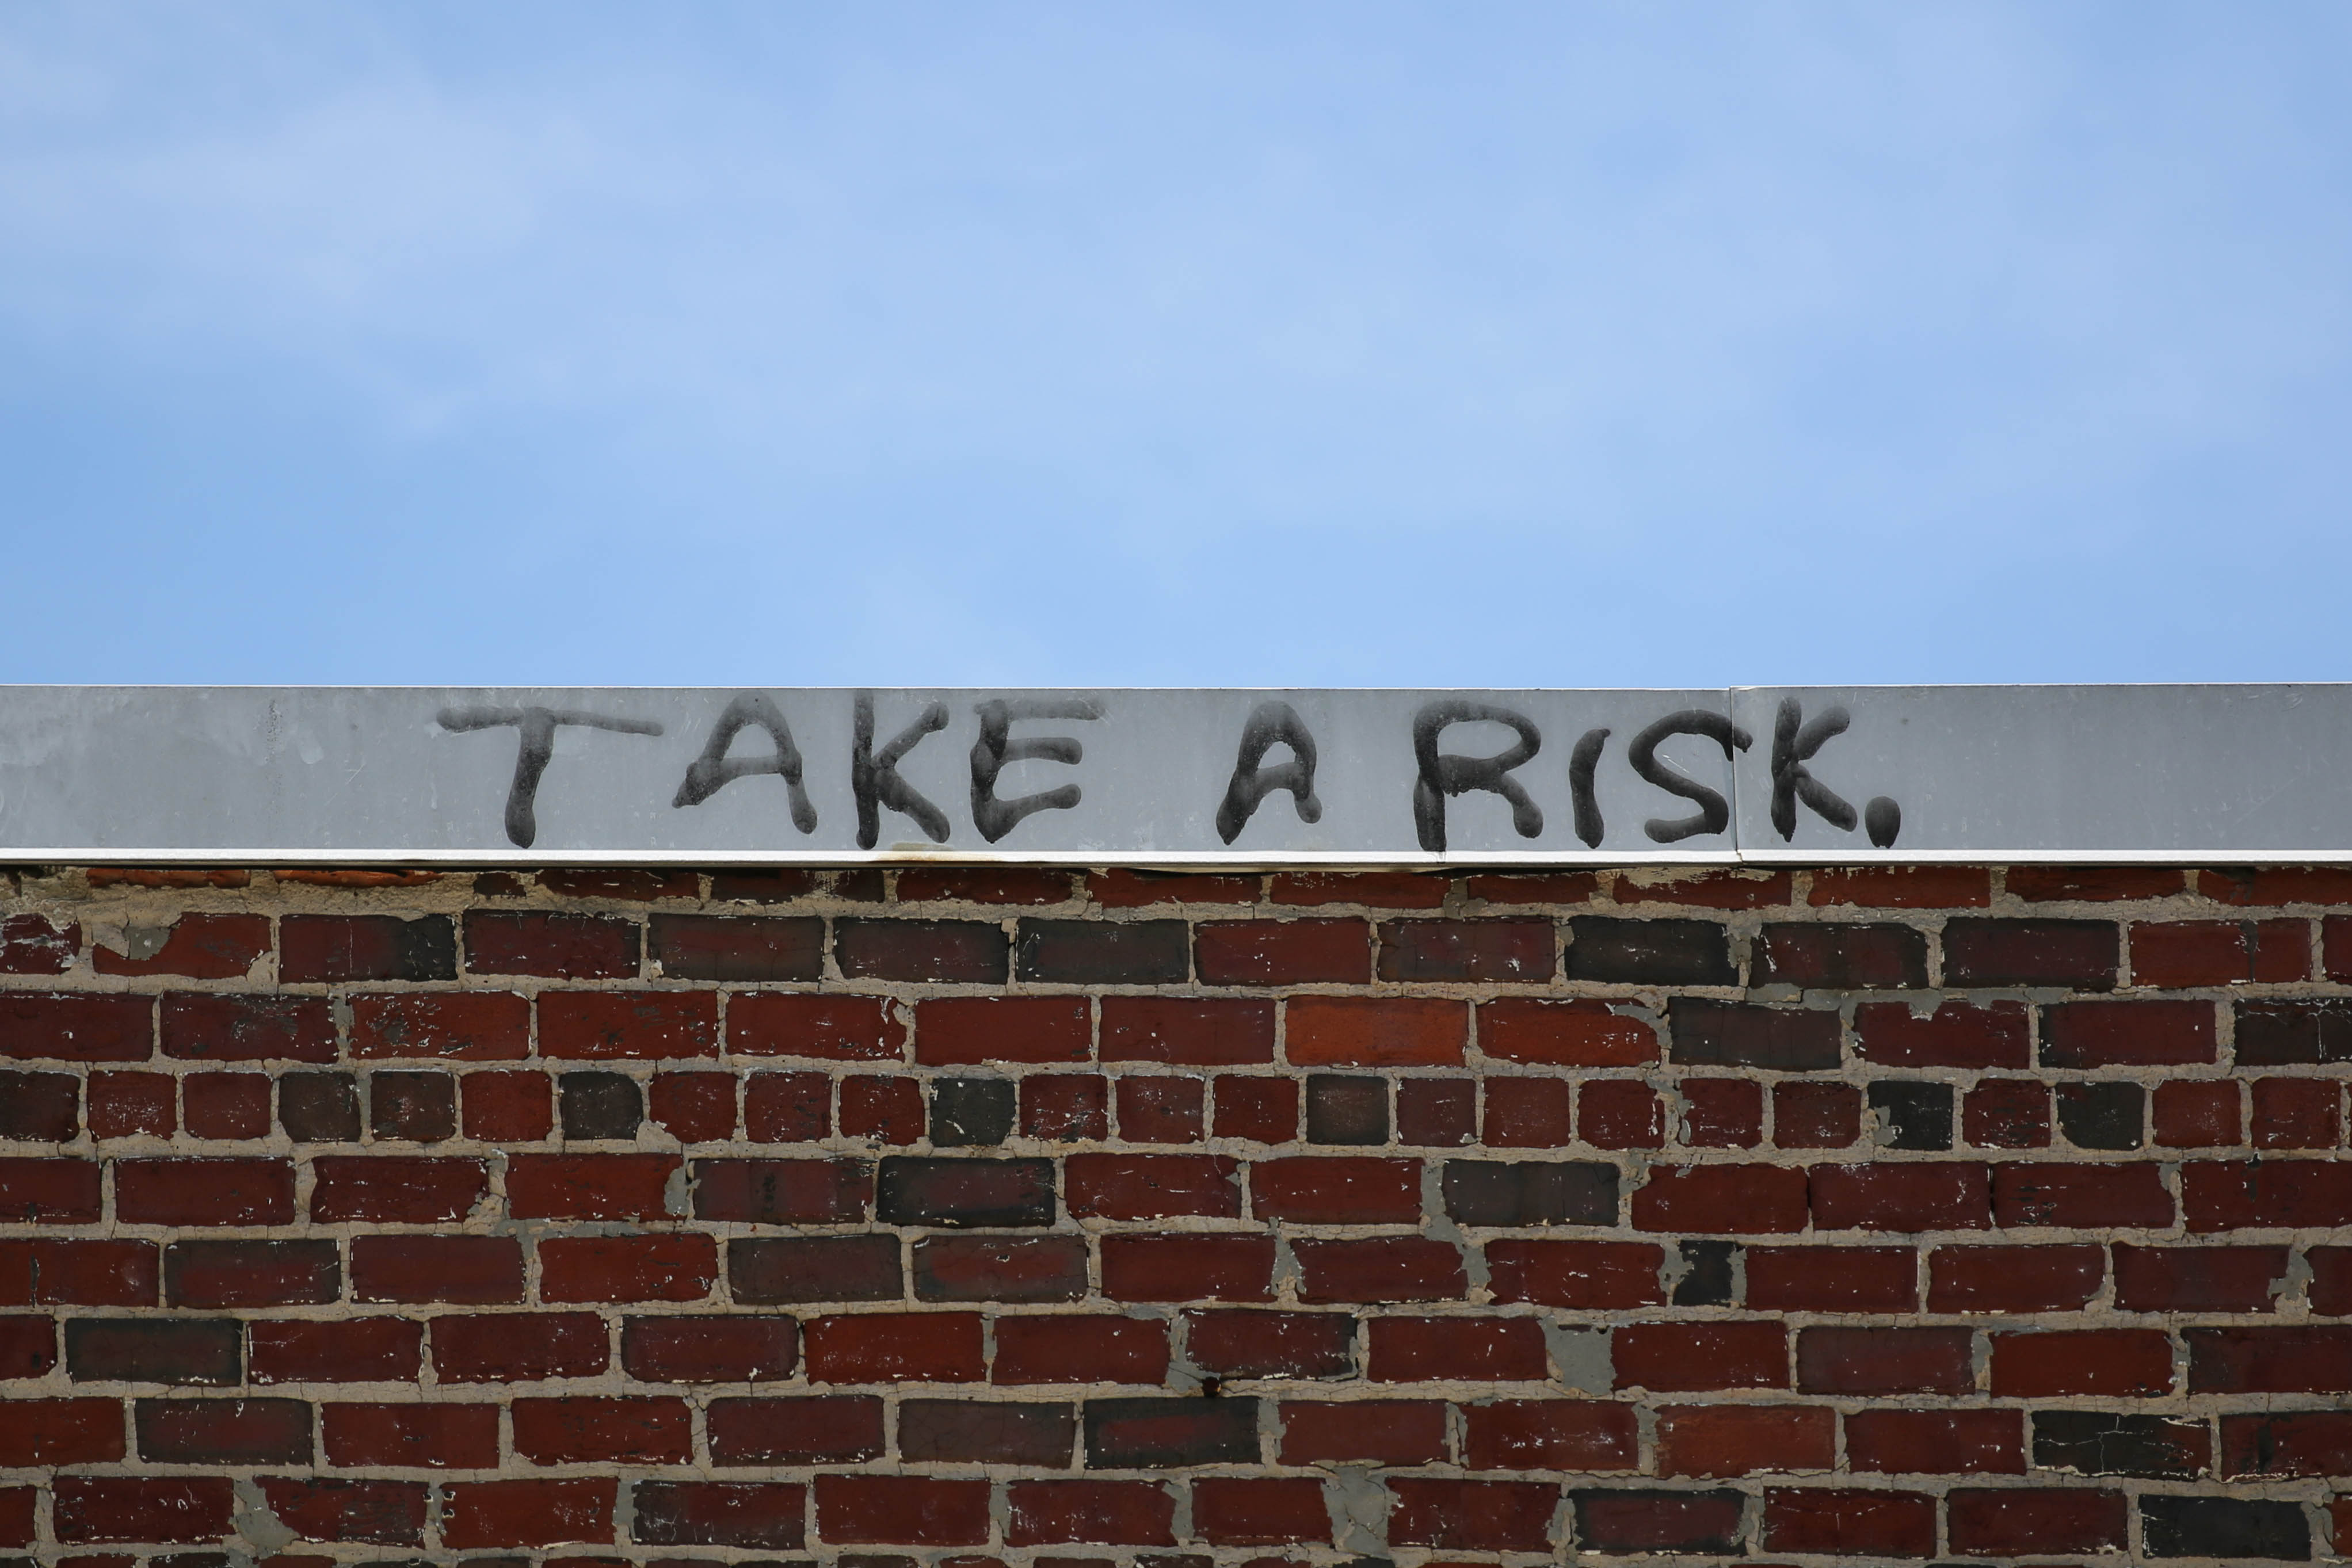 TAKE A RISK.